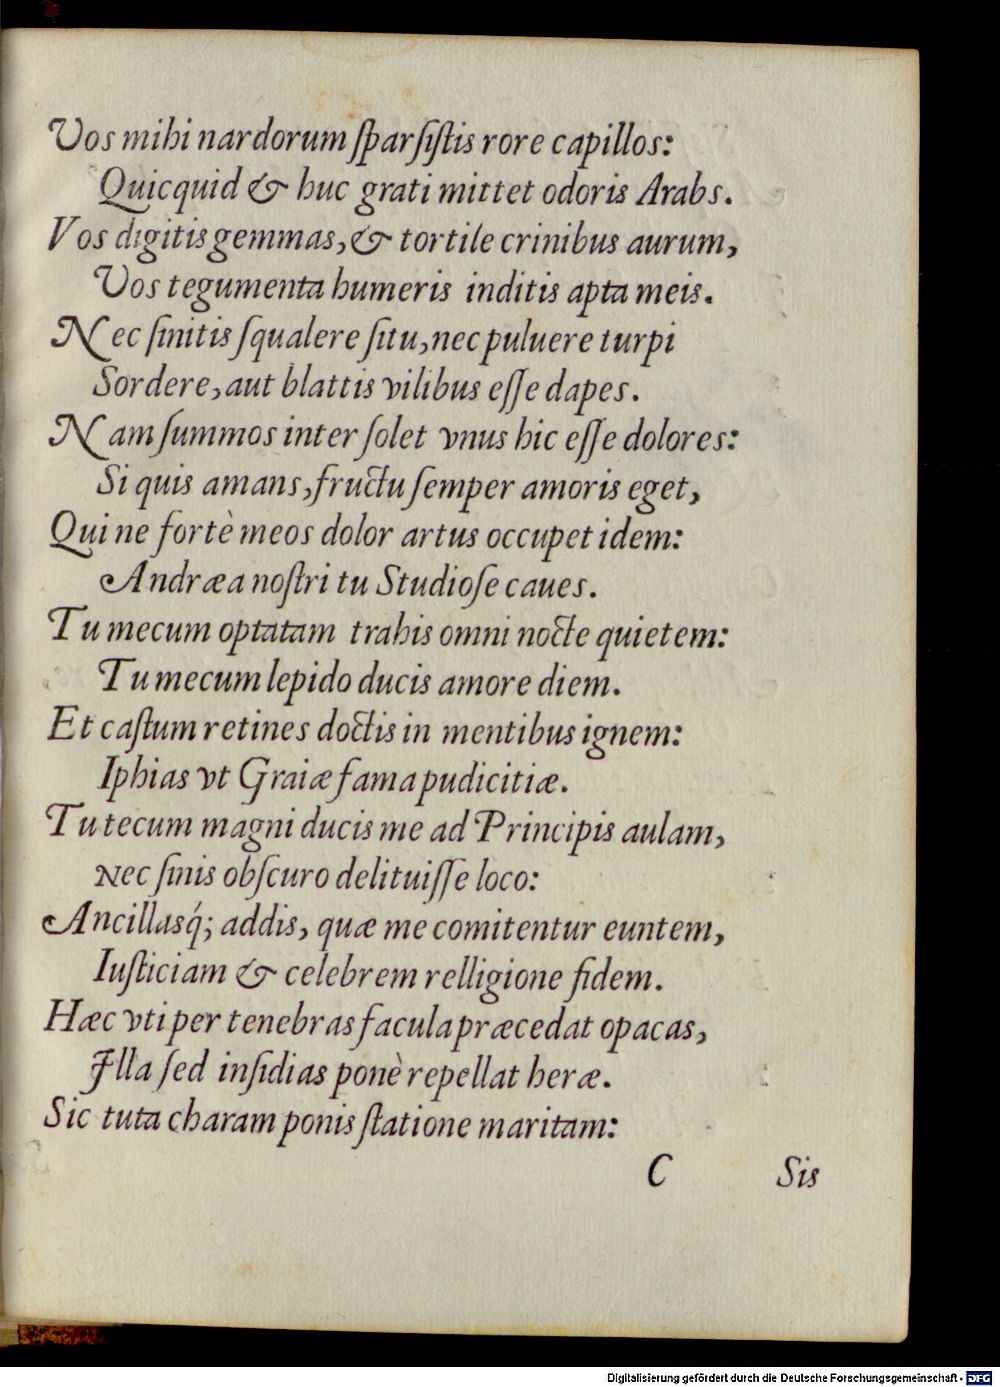 Vos mihi nardorum ſparſiſtis rore capillos:
Quicquid & huc grati mittet odoris Arabs.
Vos digitis gemmas, & tortile crinibus aurum,
Vos tegumenta humeris inditis apta meis.
Nec ſinitis ſqualere ſitu, nec puluere turpi
Sordere, aut blattis vilibus eſſe dapes.
Nam ſummos inter ſolet vnus hic eſſe dolores:
Si quis amans, fructu ſemper amoris eget,
Qui ne fortè meos dolor artus occupet idem:
Andræa noſtri tu Studioſe caues.
Tu mecum optatam trahis omni nocte quietem:
Tu mecum lepido ducis amore diem.
Et caſtum retines doctis in mentibus ignem:
Iphias vt Graiæ fama pudicitiæ.
Tu tecum magni ducis me ad Principis aulam,
Nec ſinis obſcuro delituiſſe loco:
Ancillasq́; addis, quæ me comitentur euntem,
Iuſticiam & celebrem relligione fidem.
Hæc vti per tenebras facula præcedat opacas,
Illa ſed inſidias ponè repellat heræ.
Sic tuta charam ponis ſtatione maritam:
C Sis
Digitalisierung gefördert durch die Deutsche Forschungsgemeinschaft - DFG